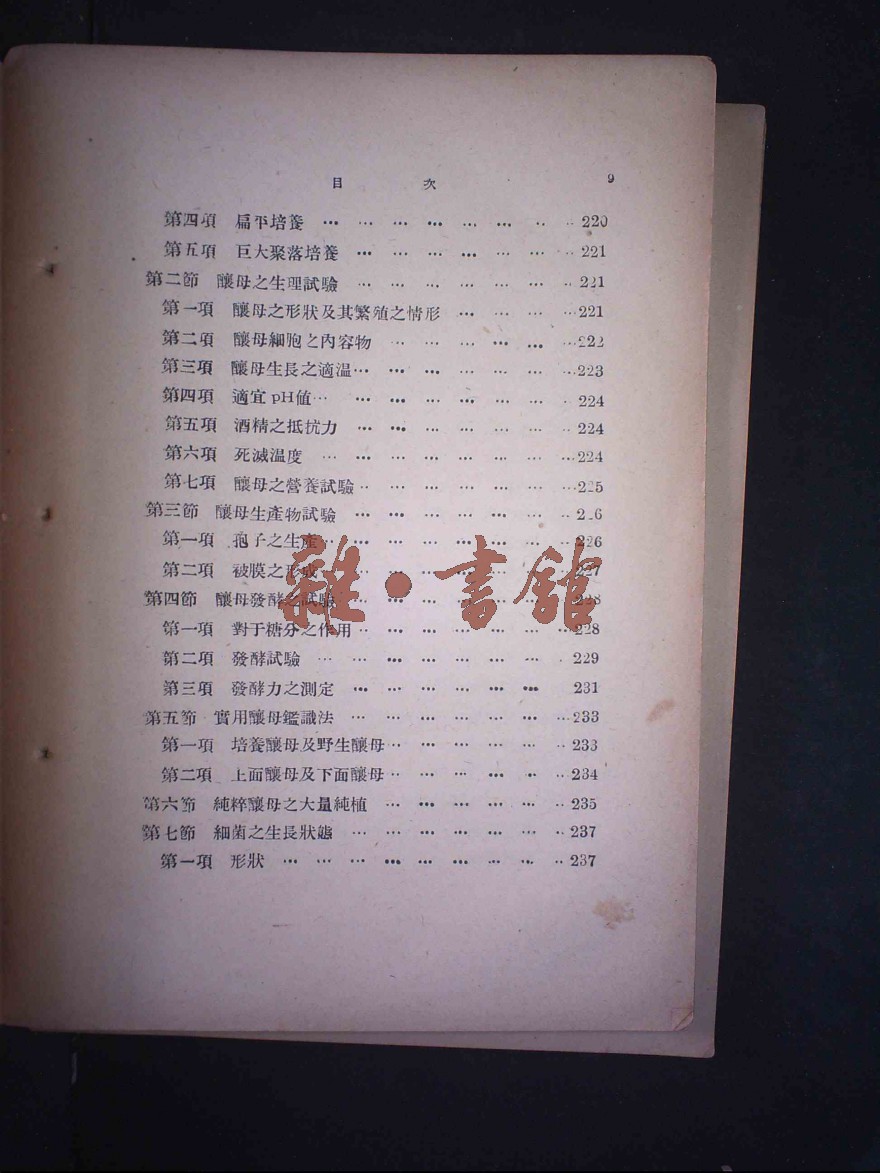 目 次 9
第四項 扁平培養 … … … … … … ‥ ‥ 220
第五項 巨大聚落培養 … … … … … … ‥ 221
第二節 釀母之生理試驗 … … … … … … ‥ 221
第一項 釀母之形狀及其繁殖之情形 … … … … 221
第二項 釀母細胞之內容物 … … … … … … 222
第三項 釀母生長之適溫 … … … … … … … 223
第四項 適宜pH值 … … … … … … … ‥ 224
第五項 酒精之抵抗力 … … … … … … ‥ 224
第六項 死滅温度 … … … … … … … … 224
第七項 釀母之營養試驗 ‥ … … … … … … 225
第三節 釀母生產物試驗 … … … … … … ‥ 226
第一項 孢子之生產 … … … … … … … ‥ 226
第二項 被膜之形成 … … … … … … … ‥ 227
第四節 釀母發酵之試驗 … … … … … … ‥ 228
第一項 對于糖分之作用 ‥ … … … … … … ‥ 228
第二項 發酵試驗 … … … … … … … ‥ 229
第三項 發酵力之測定 … … … … … … 231
第五節 實用釀母鑑識法 … … … … … … … 233
第一項 培養釀母及野生釀母 ‥ … … … … ‥ 233
第二項 上面釀母及下面釀母 ‥ … … … ‥ ‥ 234
第六節 純粹釀母之大量純植 … … … … … ‥ 235
第七節 細菌之生長狀態 … … … … … … ‥ 237
第一項 形狀 … … … … … … … … ‥ 237
雜·書舘